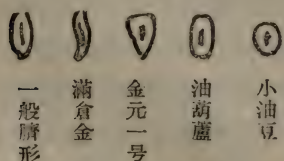 小油豆
油葫蘆
金元一号
滿倉金
一般臍形